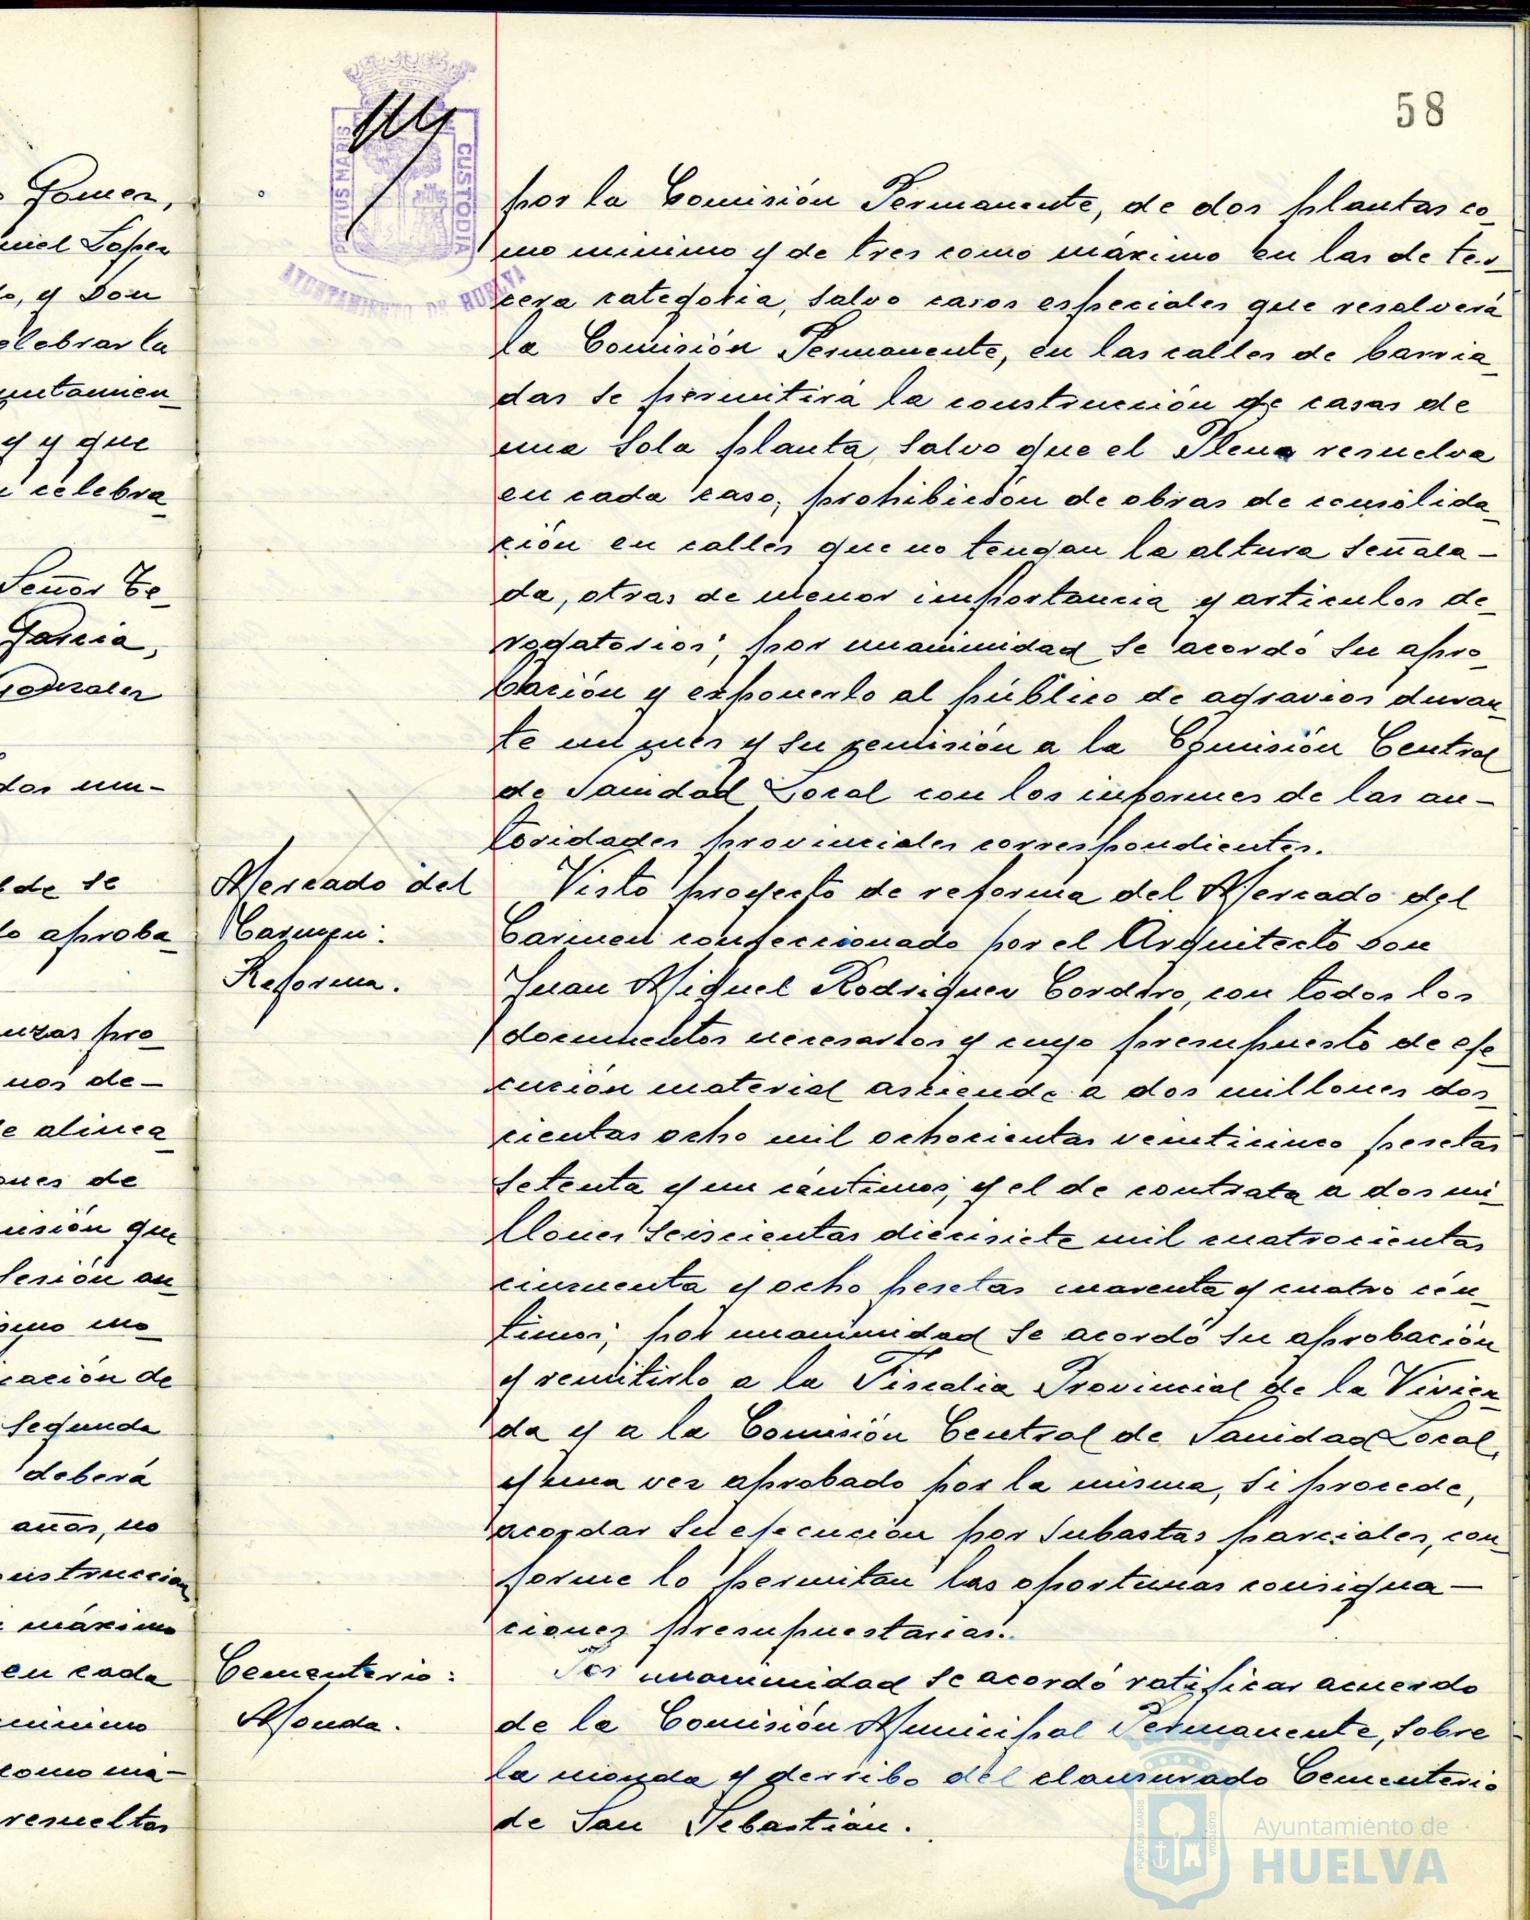 58
PORTUS MARIS
CUSTODIA
AYUNTAMIENTO DE HUELVA
Gomez,
Lopez
, y Don
celebrar la
y que
celebra
Señor Te_
Garcia,
Gonzalez
dos mu-
de se
lo aproba_
pro_
de-
alinea_
de
que
Sesión an_
mo_
cación de
Segunda
deberá
años, no
máximo
en cada
minimo
como má-
resueltos
por la Comisión Permanente, de dos plantas co_
mo minimo y de tres como máximo en las de ter_
cera categoria, salvo casos especiales que resolverá
la Comisión Permanente, en las calles de barria_
das se permitirá la construcción de casas de
una sola planta, salvo que el Pleno resuelva
en cada caso; prohibición de obras de consolida_
ción en calles que no tengan la altura señala-
da, otras de menor importancia y articulos de_
rogatorios; por unanimidad se acordó su apro_
bación y exponerlo al público de agravios duran_
te un mes y su remisión a la Comisión Central
de Sanidad Local con los informes de las au-
toridades provinciales correspondientes.
Mercado del
Carmen:
Reforma.
Visto proyecto de reforma del Mercado del
Carmen confeccionado por el Arquitecto Don
Juan Miguel Rodriguez Cordero, con todos los
documentos necesarios y cuyo presupuesto de eje_
cución material asciende a dos millones dos_
cientas ocho mil ochocientas veinticinco pesetas
setenta y un céntimos; y el de contrata a dos mi_
llones seiscientas diecisiete mil cuatrocientas
cincuenta y ocho pesetas cuarenta y cuatro cén_
timos; por unanimidad se acordó su aprobación
y remitirlo a la Fiscalia Provincial de la Vivien_
da y a la Comisión Central de Sanidad Local,
y una vez aprobado por la misma, si procede,
acordar su ejecución por subastas parciales, con_
forme lo permitan las oportunas consigna-
ciones presupuestarias.
Cementerio:
Monda.
Por unanimidad se acordó ratificar acuerdo
de la Comisión Municipal Permanente, sobre
la monda y derribo del clausurado Cementerio
de San Sebastián.
Ayuntamiento de
HUELVA